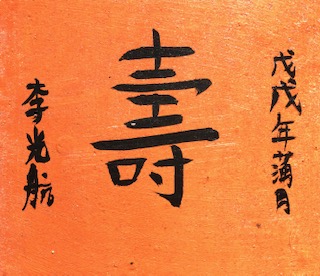 戊戌年蒲月
壽
李光航